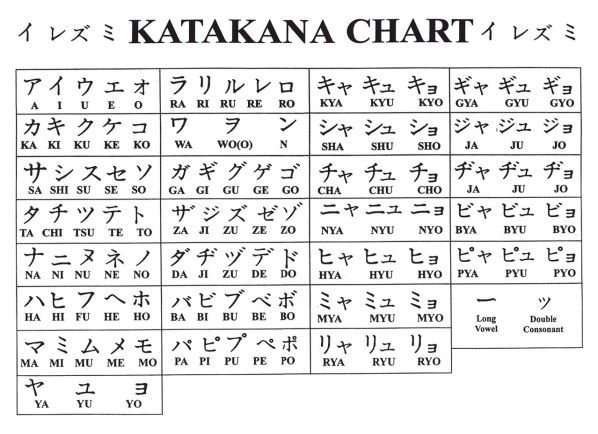 イレズミ KATAKANA CHART イレズミ
ア イ ウ エ オ ラ リ ル レ ロ キャ キュ キョ ギャ ギュ ギョ
A I U E O RA RI RU RE RO KYA KYU KYO GYA GYU GYO
カ キ ク ケ コ ワ ヲ ン シャ シュ ショ ジャ ジュ ジョ
KA KI KU KE KO WA WO(O) N SHA SHU SHO JA JU JO
サ シ ス セ ソ ガ ギ グ ゲ ゴ チャ チュ チョ ヂャ ヂュ ヂョ
SA SHI SU SE SO GA GI GU GE GO CHA CHU CHO JA JU JO
タ チ ツ テ ト ザ ジ ズ ゼ ゾ ニャ ニュ ニョ ビャ ビュ ビョ
TA CHI TSU TE TO ZA JI ZU ZE ZO NYA NYU NYO BYA BYU BYO
ナ ニ ヌ ネ ノ ダ ヂ ヅ デ ド ヒャ ヒュ ヒョ ピャ ピュ ピョ
NA NI NU NE NO DA JI ZU DE DO HYA HYU HYO PYA PYU PYO
ハ ヒ フ ヘ ホ バ ビ ブ ベ ボ ミャ ミュ ミョ ー ッ
HA HI FU HE HO BA BI BU BE BO MYA MYU MYO Long Vowel Double Consonant
マ ミ ム メ モ パ ピ プ ペ ポ リャ リュ リョ
MA MI MU ME MO PA PI PU PE PO RYA RYU RYO
ヤ ユ ヨ
YA YU YO